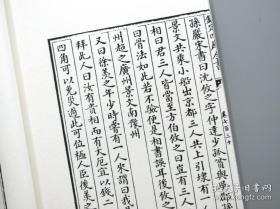 孫嚴宋書曰沈攸之字仲達少孤貧與
景文共乘小船出京都三人共上引埭有一
曰君三人皆當至方伯攸之曰豈有三
曰骨法如此若不驗便是相書誤耳後攸
州超之廣州景文南徐州
又曰徐羨之年少時嘗有一人來謂曰我
拜此人曰汝有貴相而有大厄宜以錢二
四角可以免災過此可位極人臣後羨之